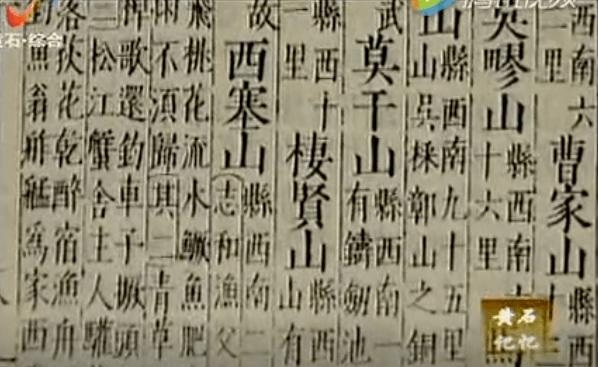 西南六
里
曹家山
縣西
英嵺山
縣西南十
十六里
山
縣西南九十五里
山吳採鄣山之銅
武
莫干山
縣西南一
有鑄劒池
縣西十
里
棲賢山
縣西
山有
故
西塞山
縣西南二
志和漁父
飛桃花流水鱖魚肥
不須歸其二青草
歌還釣車子橛頭
三松江蟹舍主人驩
落荻花乾醉宿漁舟
魚翁舴艋爲家西
石·综合
黄石
记忆